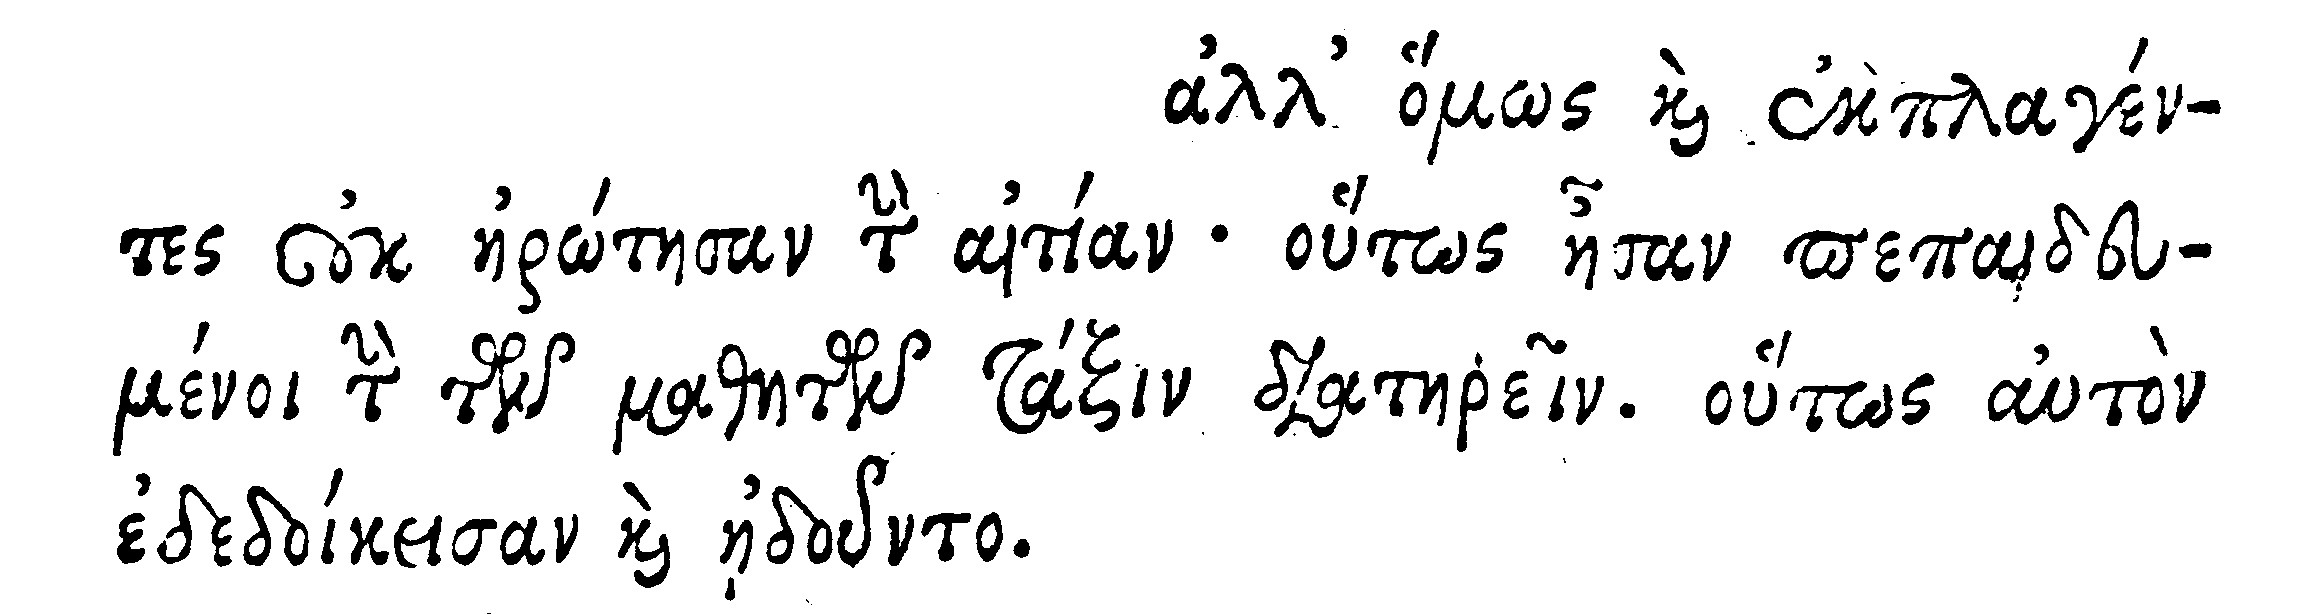 ἀλλ' ὅμως καὶ ἐκπλαγέν-
τες οὐκ ἠρώτησαν τὴν αἰτίαν· οὕτως ἦσαν πεπαιδευ-
μένοι τὴν τῶν μαθητῶν τάξιν διατηρεῖν. οὕτως αὐτὸν
ἐδεδοίκεισαν καὶ ᾐδοῦντο.